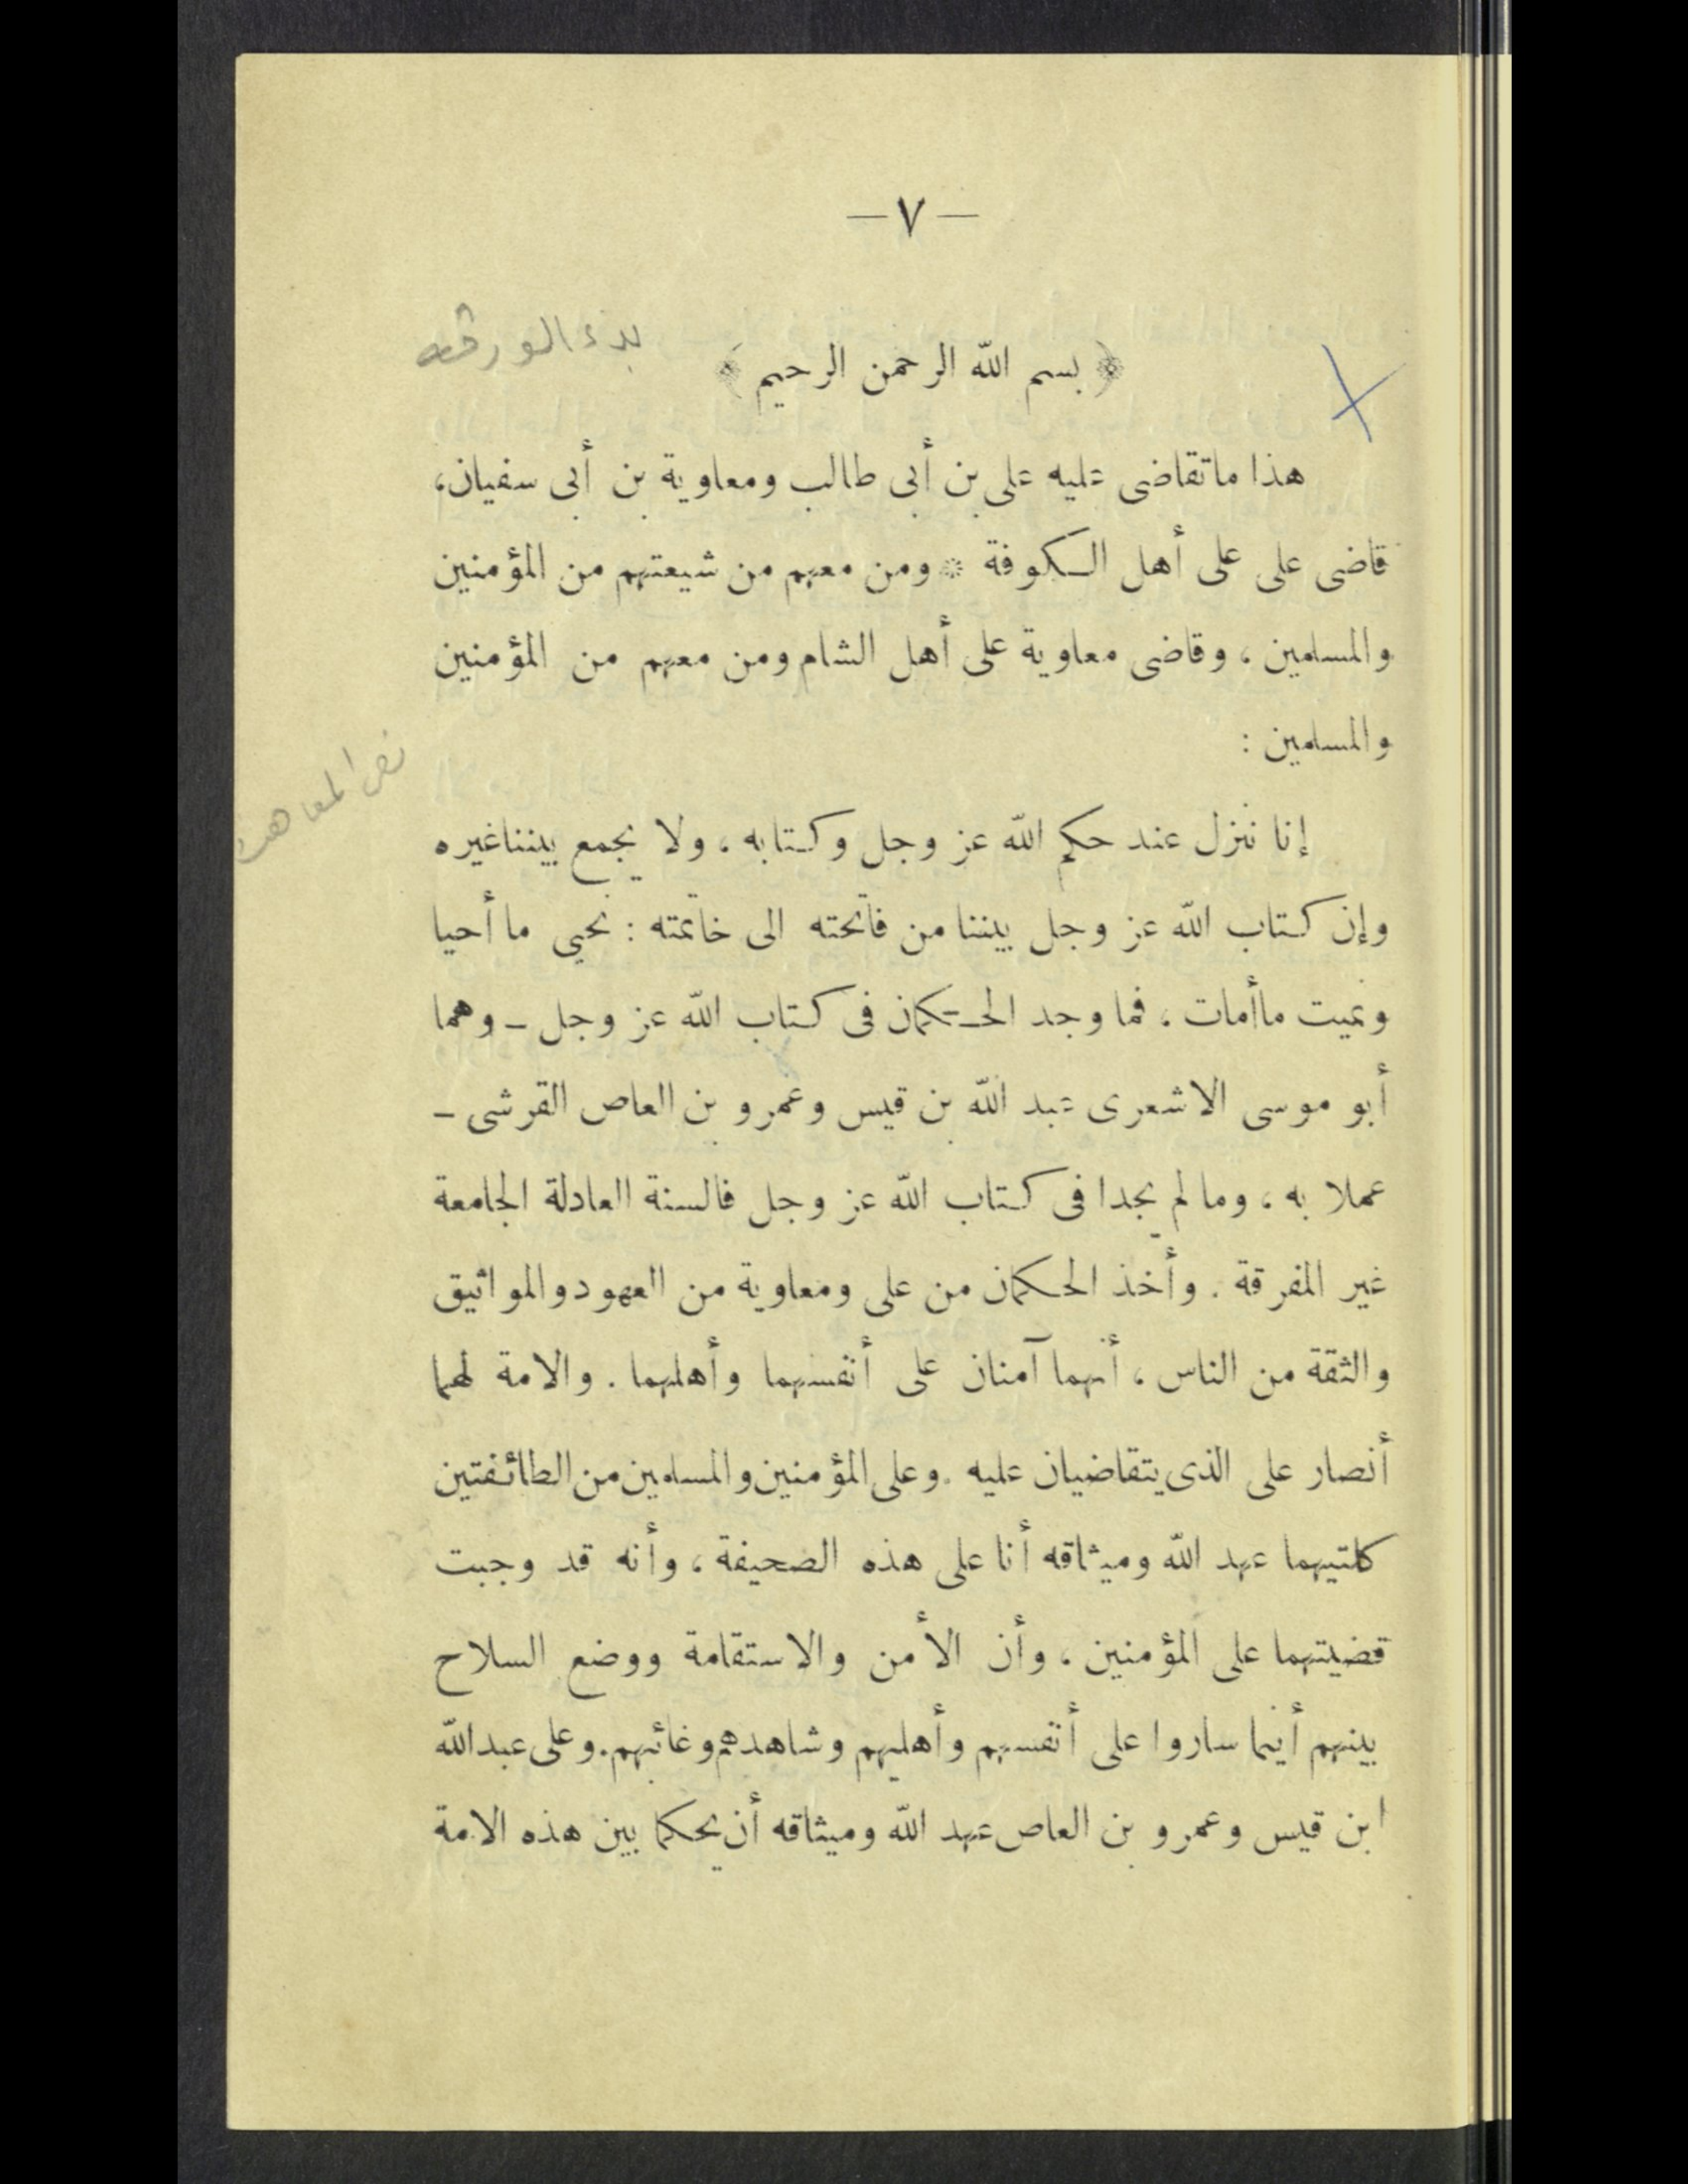 — ٧ —
بدء الورقه
﴿ بسم الله الرحمن الرحيم ﴾
هذا ماتقاضى عليه على بن أبى طالب ومعاوية بن أبى سفيان،
قاضى على على أهل الكوفة * ومن معهم من شيعتهم من المؤمنين
والمسلمين ، وقاضى معاوية على أهل الشام ومن معهم من المؤمنين
والمسلمين :
نص المعاهدة
إنا ننزل عند حكم الله عز وجل وكتابه ، ولا يجمع بينناغيره
وإن كتاب الله عز وجل بيننا من فاتحته الى خاتمته : نحيي ما أحيا
ونميت ماأمات ، فما وجد الحكمان فى كتاب الله عز وجل ــ وهما
أبو موسى الاشعرى عبد الله بن قيس وعمرو بن العاص القرشى ــ
عملا به ، وما لم يجدا فى كتاب الله عز وجل فالسنة العادلة الجامعة
غير المفرقة . وأخذ الحكمان من على ومعاوية من العهود والمواثيق
والثقة من الناس ، أنهما آمنان على أنفسهما وأهلهما . والامة لهما
أنصار على الذى يتقاضيان عليه . وعلى المؤمنين والمسلمين من الطائفتين
كلتيهما عهد الله وميثاقه أنا على هذه الصحيفة ، وأنه قد وجبت
قضيتهما على المؤمنين ، وأن الأمن والاستقامة ووضع السلاح
بينهم أينما ساروا على أنفسهم وأهليهم وشاهدهم وغائبهم . وعلى عبدالله
ابن قيس وعمرو بن العاص عهد الله وميثاقه أن يحكما بين هذه الامة